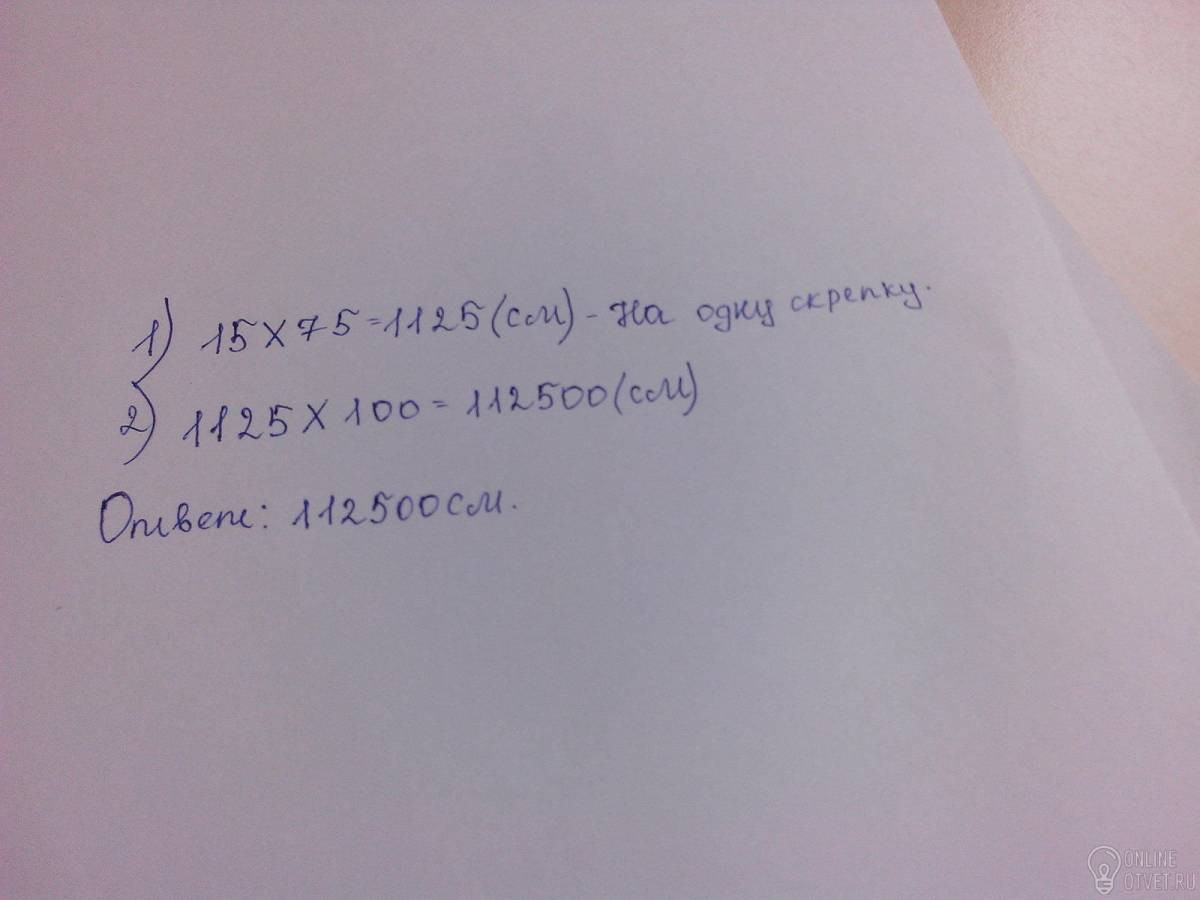 1) 15 х 75 = 1125 (см) - На одну скрепку.
2) 1125 х 100 = 112500 (см)
Ответ: 112500 см.
ONLINE
OTVET.RU